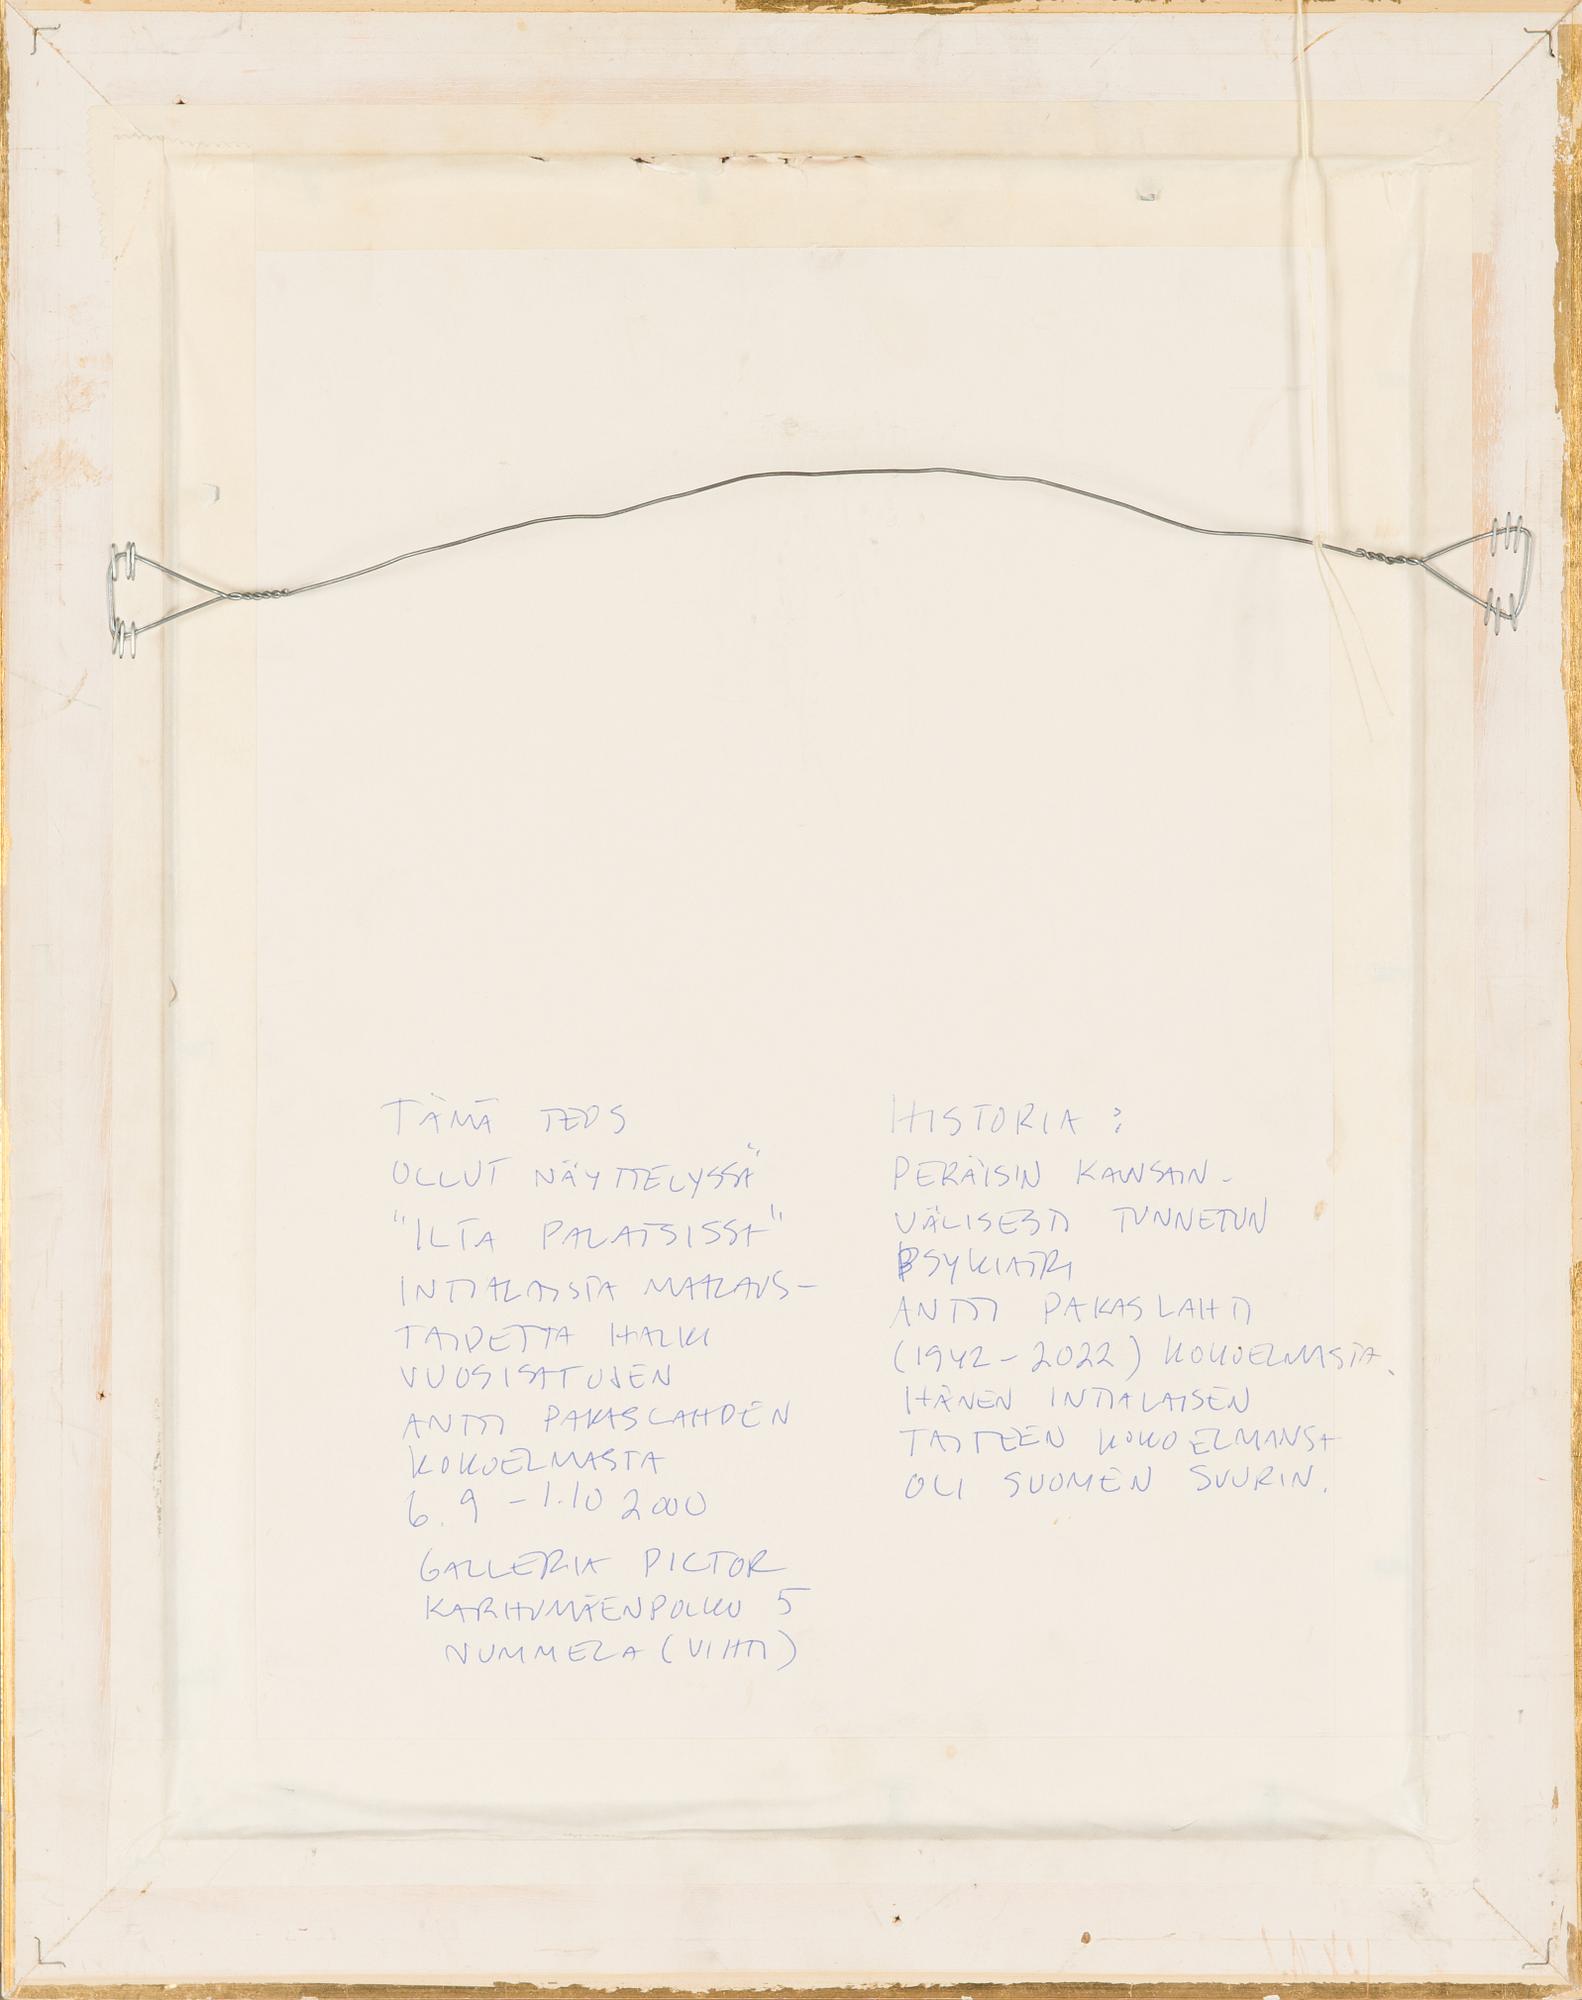 TÄMÄ TEOS
OLLUT NÄYTTELYSSÄ
"ILTA PALATSISSA"
INTIALAISTA MAALAUS-
TAIDETTA HALKI
VUOSISATOJEN
ANTTI PAKASLAHDEN
KOKOELMASTA
6.9 - 1.10 2000
GALLERIA PICTOR
KARHUMÄENPOLKU 5
NUMMELA (VIHTI)
HISTORIA:
PERÄISIN KANSAIN-
VÄLISESTI TUNNETUN
PSYKIATRI
ANTTI PAKASLAHTI
(1942-2022) KOKOELMASTA.
HÄNEN INTIALAISEN
TAITEEN KOKOELMANSA
OLI SUOMEN SUURIN.